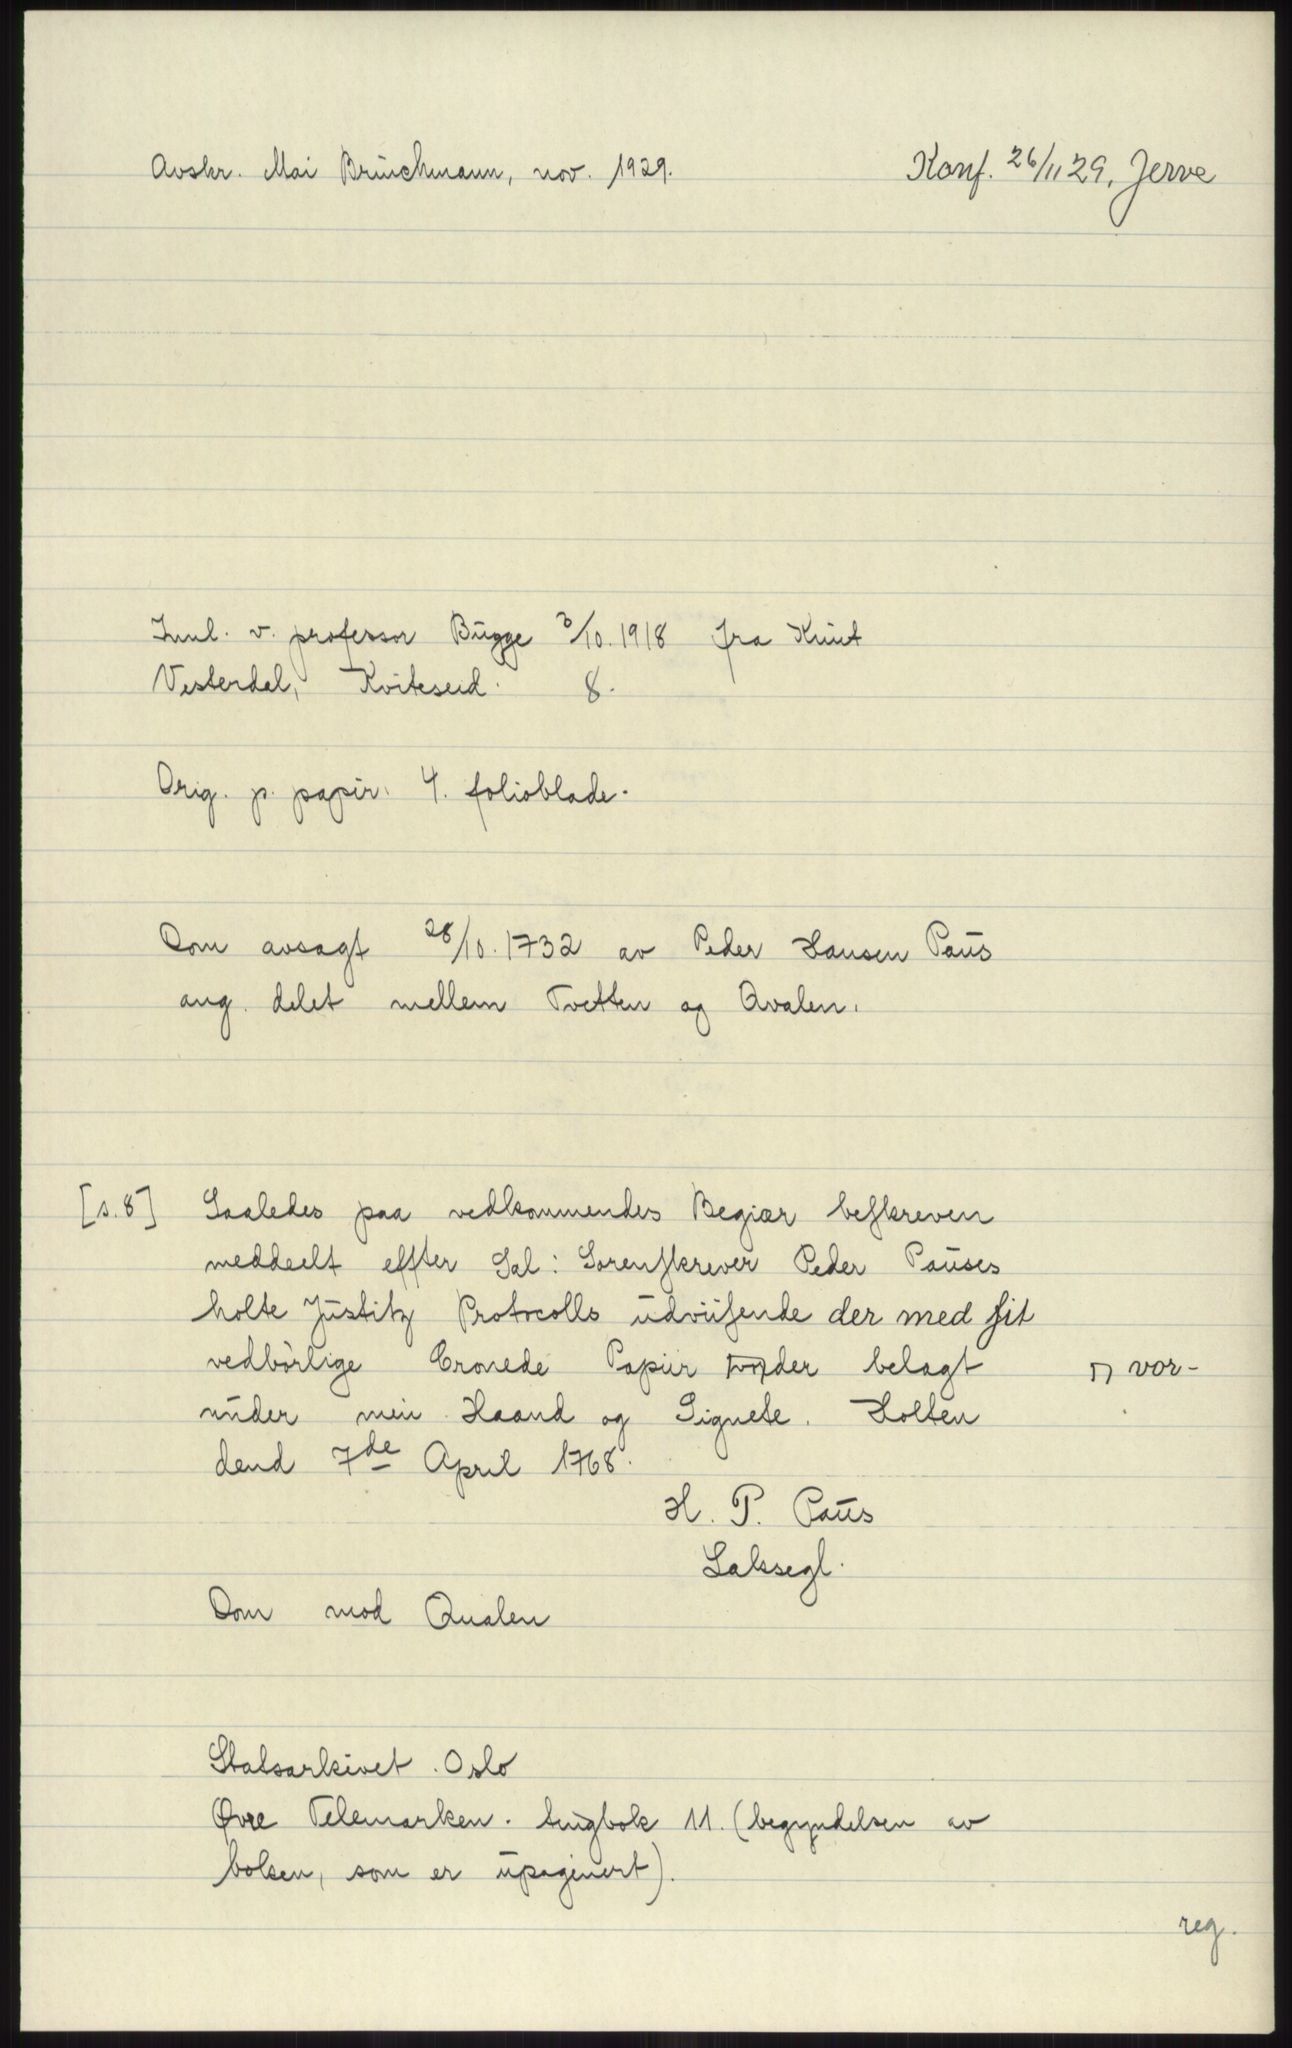 Avskr. Mai Brüchmann, nov. 1929.
Konf. 26/11 29, Jerve
Innl. v. professor Bugge 3/10. 1918 fra Knut
Vesterdal, Kviteseid. 8.
Orig. p. papir. 4. folioblade.
Dom avsagt 28/10. 1732 av Peder Hansen Paus
ang. delet mellem Tvetten og Qvalen.
[s. 8] Saaledes paa vedkommendes Begiær beskreven
meddeelt effter Sal: Sorenskrever Peder Pauses
holte Justitz Protocolls udviisende der med sit
vedbørlige Cronede Papiir der belagt
vor-
under min Haand og Signete. Holten
dend 7de April 1768.
H. P. Paus
Laksegl.
Dom mod Qualen
Statsarkivet. Oslo
Øvre Telemarken. tingbok 11. (begyndelsen av
boken, som er upaginert).
reg.